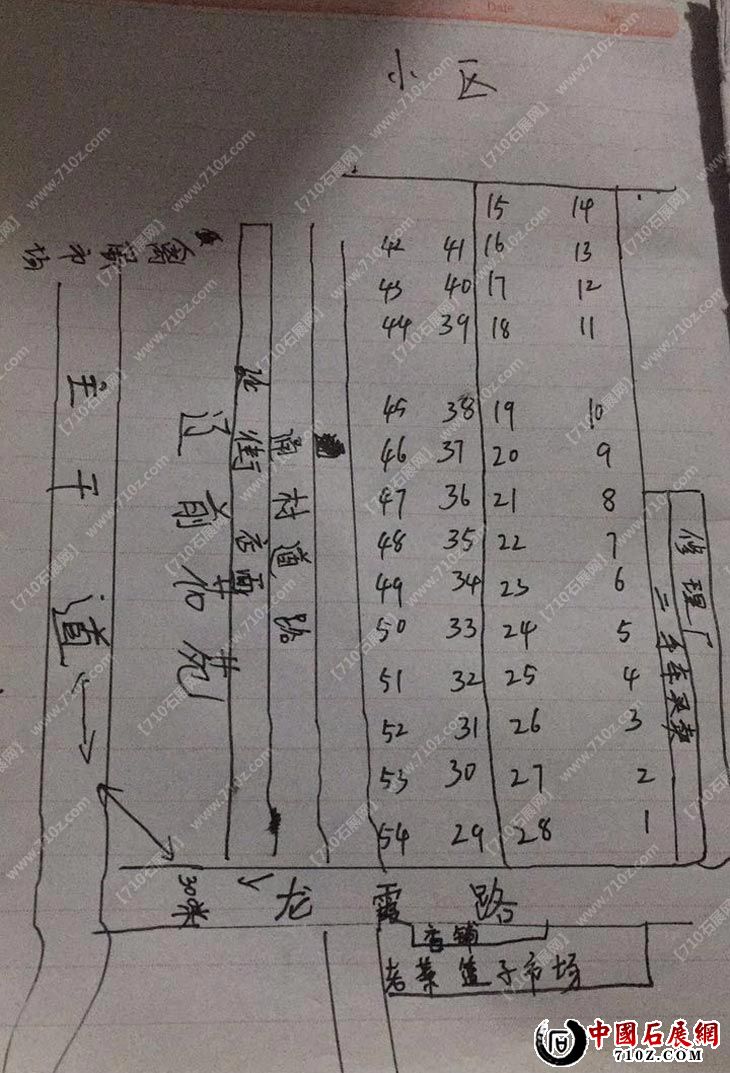 Date
小区
15 14
42 41 16 13
43 40 17 12
44 39 18 11
45 38 19 10
46 37 20 9
47 36 21 8
48 35 22 7
49 34 23 6
50 33 24 5
51 32 25 4
52 31 26 3
53 30 27 2
54 29 28 1
市场
主干道
江前花苑
沿街店面
通村道路
修理厂
二手车买卖
300米
龙霞路
店铺
老菜篮子市场
[710石展网] www.710z.com
中國石展網
710Z.COM